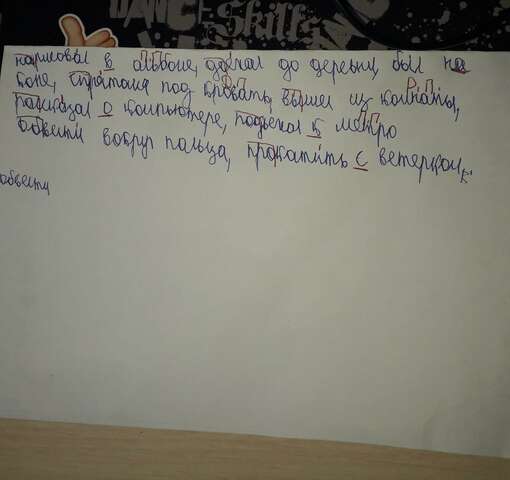 DANCE Skills
нарисовал в альбоме, доехал до деревни, был на
коне, спрятался под кровать, вышел из комнаты,
рассказал о компьютере, подъехал к метро
обвести вокруг пальца, прокатить с ветерком.
объехать